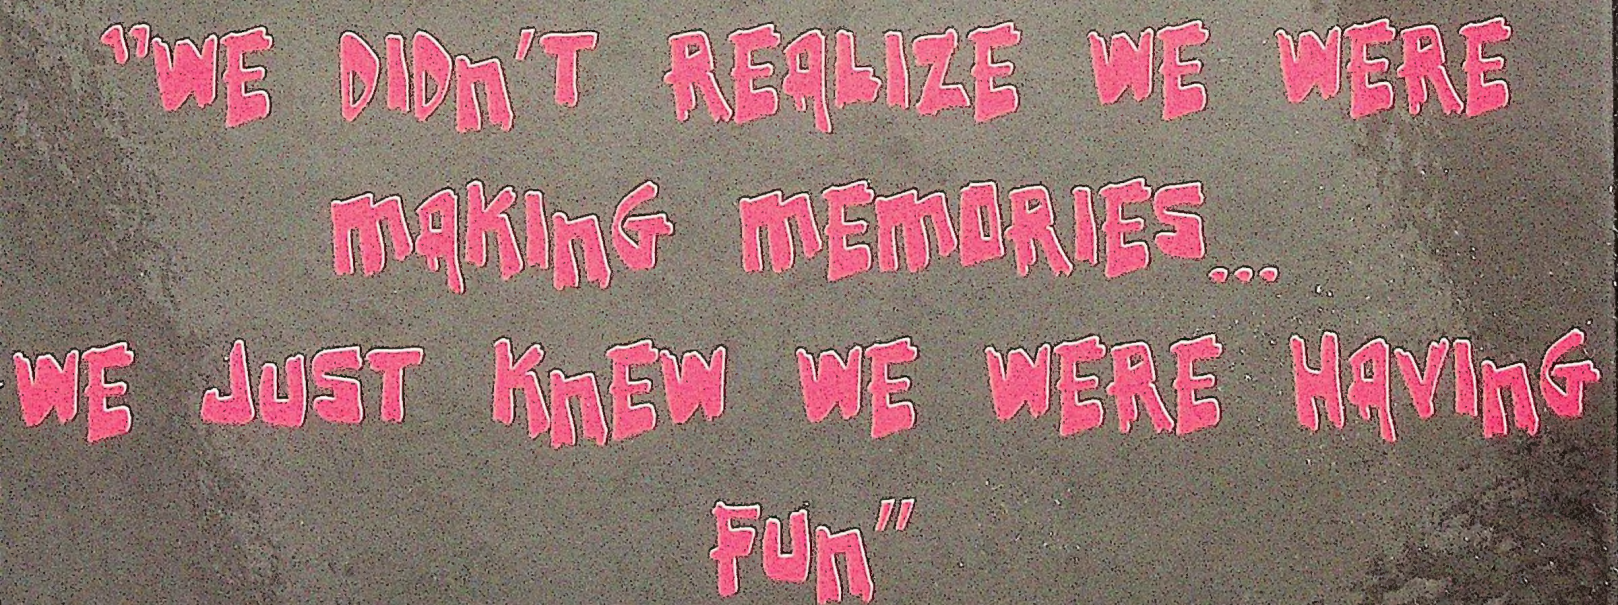 "WE DIDn'T REALIZE WE WERE
mAKInG mEmORIES...
WE JUST KnEW WE WERE HAVInG
FUn"